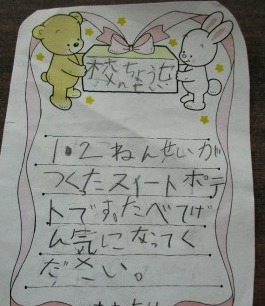 校ちょうせ
んせい
1.2ねんせいが
つくたスイートポテ
トです。たべてげ
ん気になってく
ださい。